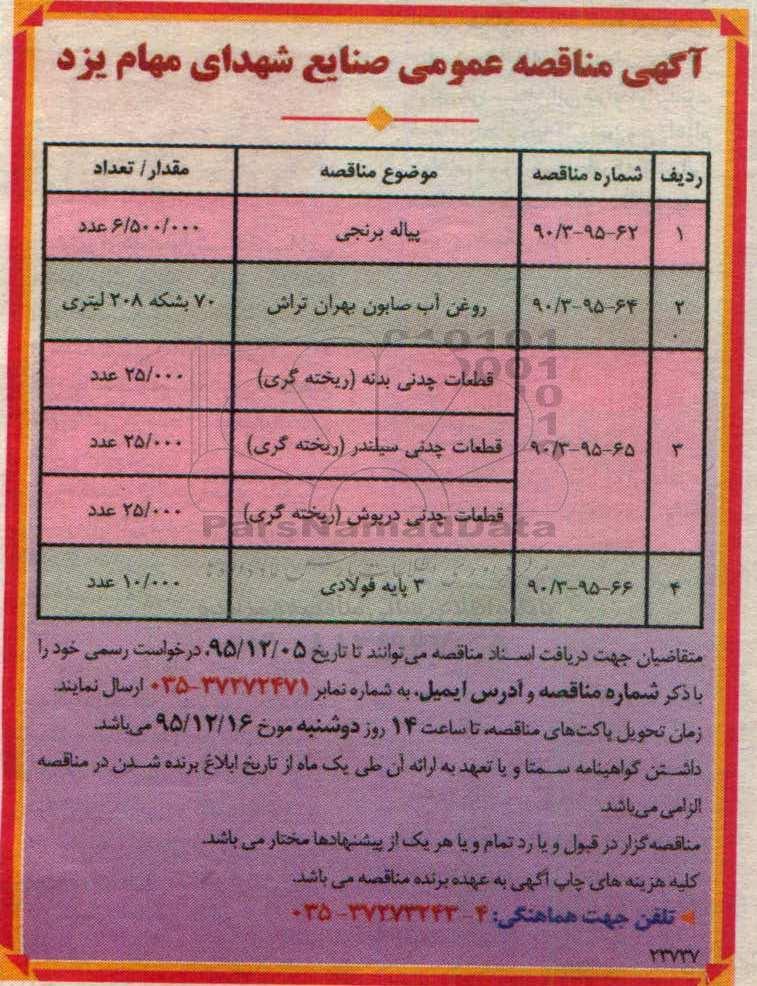 آگهی مناقصه عمومی صنایع شهدای مهام یزد
ردیف شماره مناقصه موضوع مناقصه مقدار/ تعداد
۱ ۹۰/۳-۹۵-۶۲ پیاله برنجی ۶/۵۰۰/۰۰۰ عدد
۲ ۹۰/۳-۹۵-۶۴ روغن آب صابون بهران تراش ۷۰ بشکه ۲۰۸ لیتری
۳ ۹۰/۳-۹۵-۶۵ قطعات چدنی بدنه (ریخته گری) ۲۵/۰۰۰ عدد
قطعات چدنی سیلندر (ریخته گری) ۲۵/۰۰۰ عدد
قطعات چدنی درپوش (ریخته گری) ۲۵/۰۰۰ عدد
۴ ۹۰/۳-۹۵-۶۶ ۳ پایه فولادی ۱۰/۰۰۰ عدد
ParsNamadData
متقاضیان جهت دریافت اسناد مناقصه می‌توانند تا تاریخ ۹۵/۱۲/۰۵، درخواست رسمی خود را
با ذکر شماره مناقصه و آدرس ایمیل، به شماره نمابر ۳۷۲۷۲۴۷۱-۰۳۵ ارسال نمایند.
زمان تحویل پاکت‌های مناقصه، تا ساعت ۱۴ روز دوشنبه مورخ ۹۵/۱۲/۱۶ می‌باشد.
داشتن گواهینامه سمتا و یا تعهد به ارائه آن طی یک ماه از تاریخ ابلاغ برنده شدن در مناقصه
الزامی می‌باشد.
مناقصه‌گزار در قبول و یا رد تمام و یا هر یک از پیشنهادها مختار می باشد.
کلیه هزینه های چاپ آگهی به عهده برنده مناقصه می باشد.
تلفن جهت هماهنگی: ۴-۳۷۲۷۳۲۴۳-۰۳۵
۲۳۷۳۷